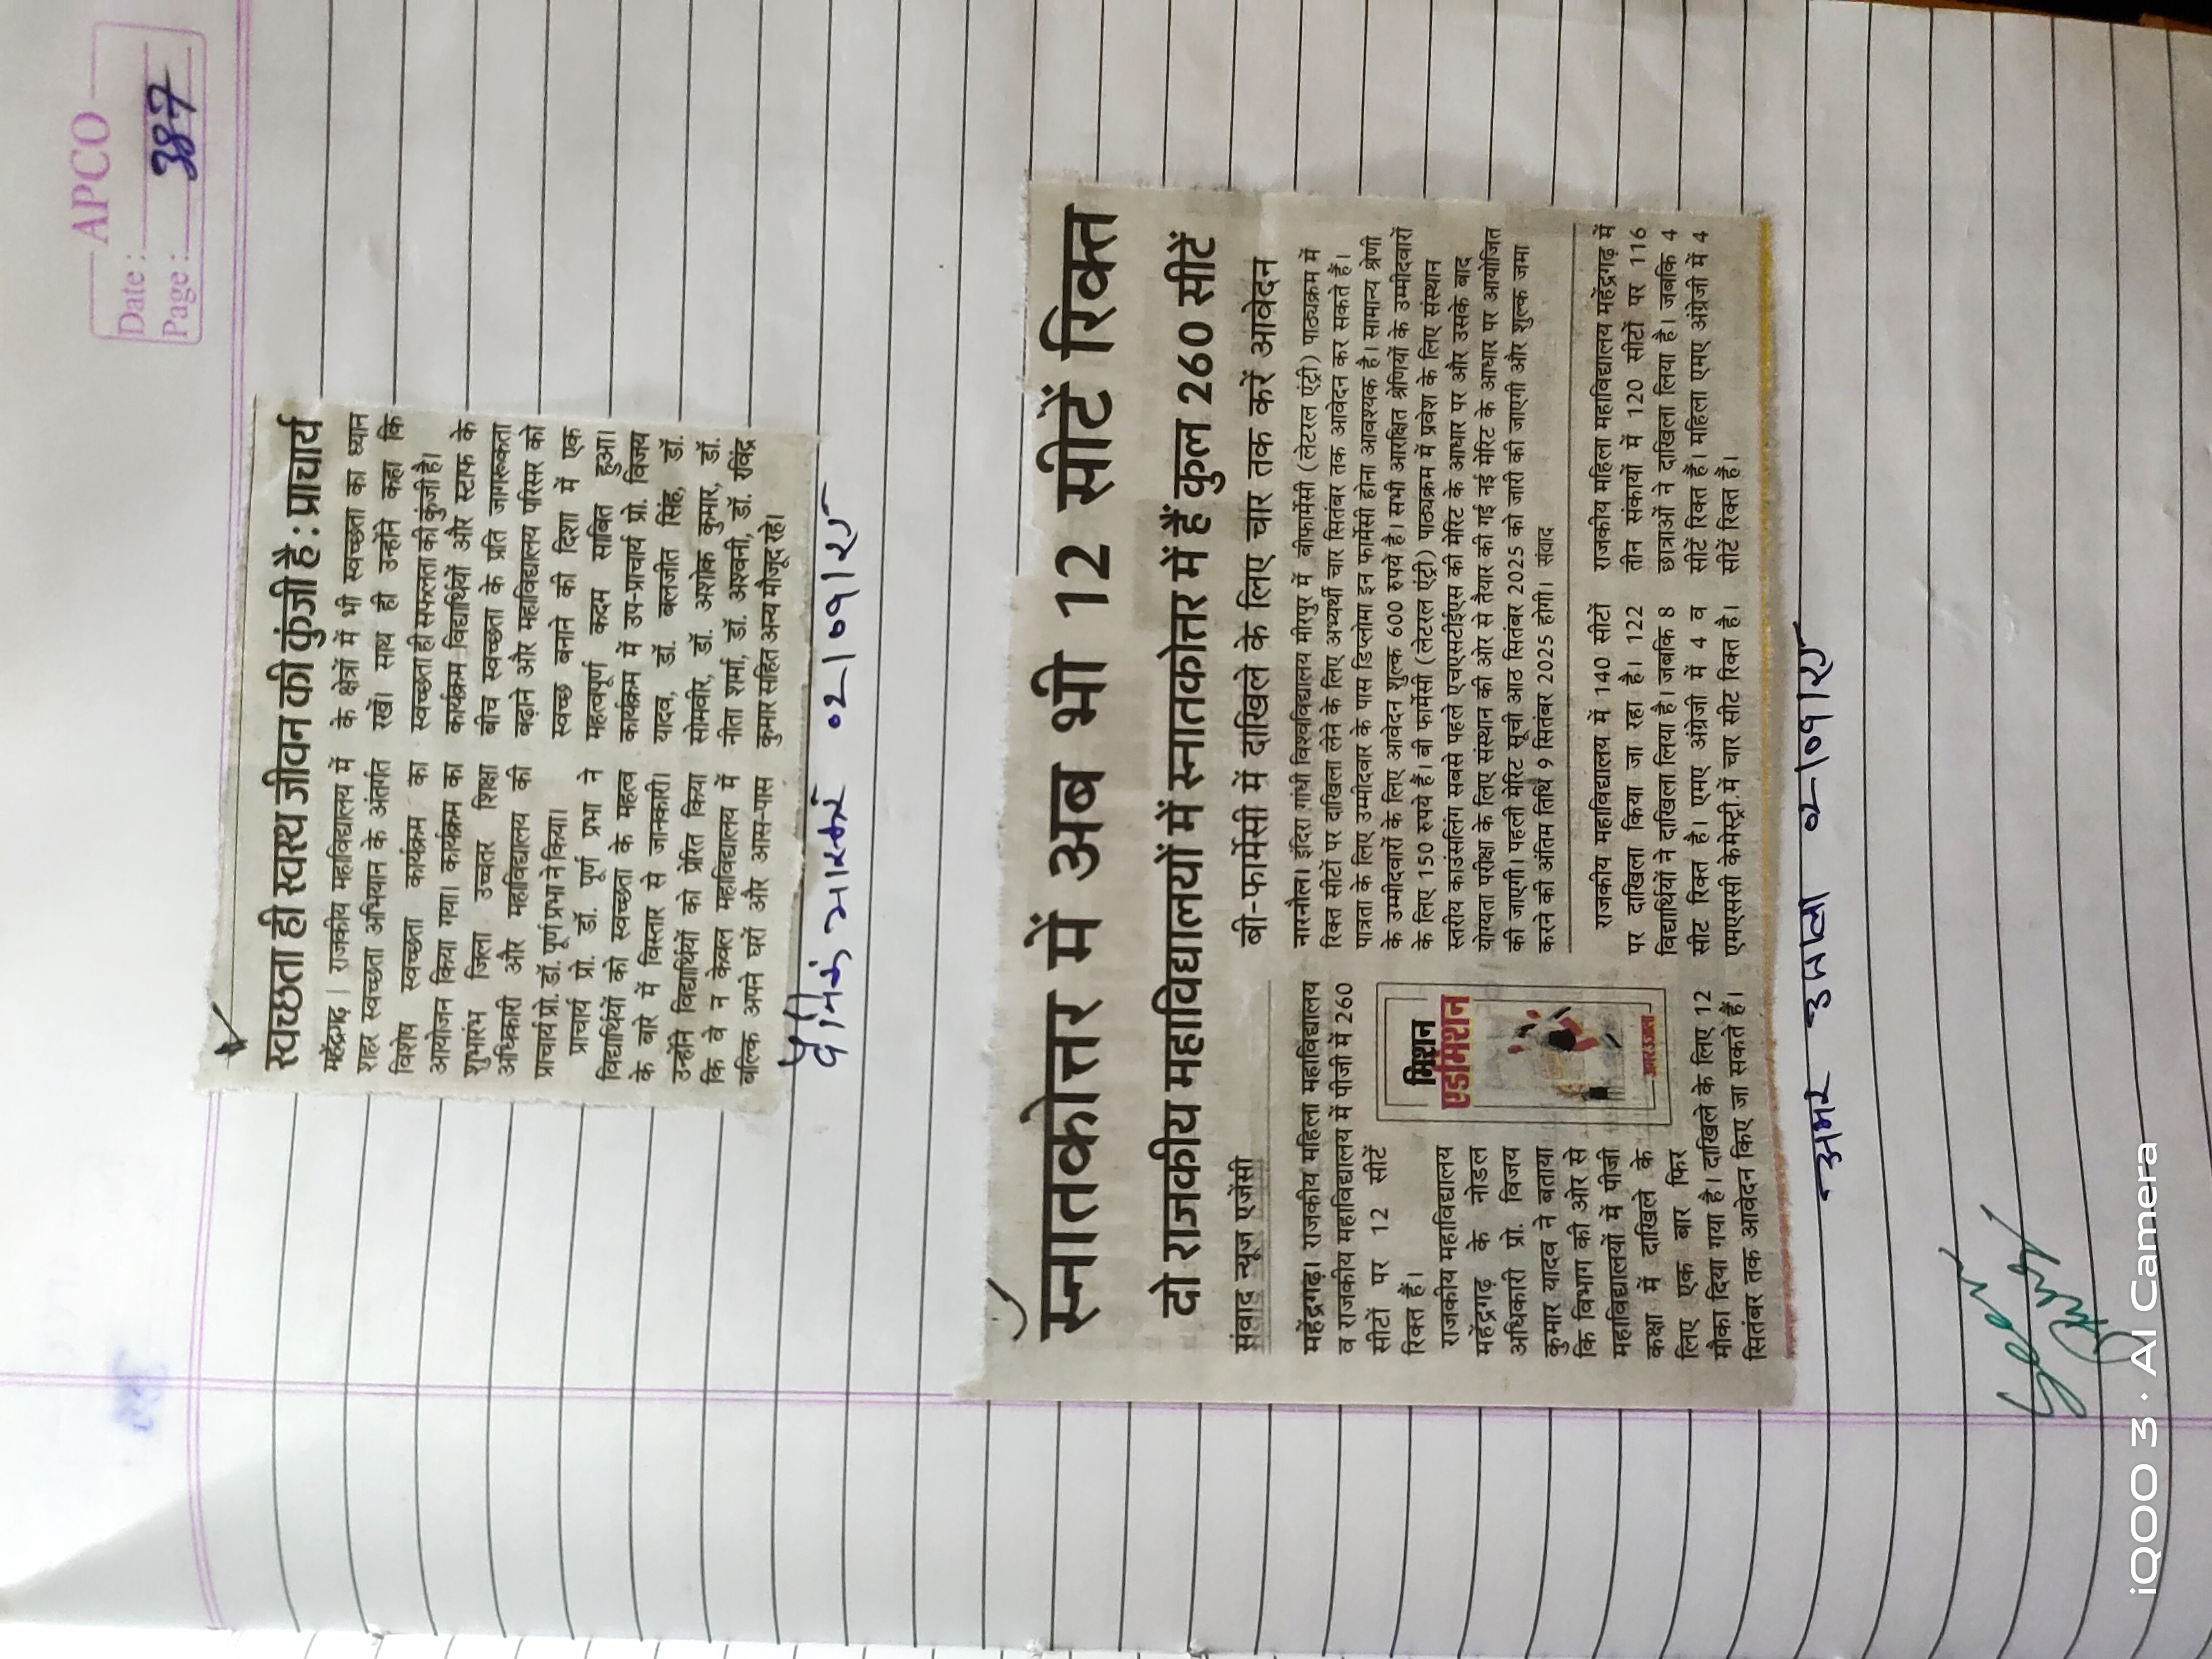 APCO
Date :
Page : 387
स्वच्छता ही स्वस्थ जीवन की कुंजी है : प्राचार्य
महेंद्रगढ़ | राजकीय महाविद्यालय में
शहर स्वच्छता अभियान के अंतर्गत
विशेष स्वच्छता कार्यक्रम का
आयोजन किया गया। कार्यक्रम का
शुभारंभ जिला उच्चतर शिक्षा
अधिकारी और महाविद्यालय की
प्राचार्य प्रो. डॉ. पूर्ण प्रभा ने किया।
प्राचार्य प्रो. डॉ. पूर्ण प्रभा ने
विद्यार्थियों को स्वच्छता के महत्व
के बारे में विस्तार से जानकारी।
उन्होंने विद्यार्थियों को प्रेरित किया
कि वे न केवल महाविद्यालय में
बल्कि अपने घरों और आस-पास
के क्षेत्रों में भी स्वच्छता का ध्यान
रखें। साथ ही उन्होंने कहा कि
स्वच्छता ही सफलता की कुंजी है।
कार्यक्रम विद्यार्थियों और स्टाफ के
बीच स्वच्छता के प्रति जागरूकता
बढ़ाने और महाविद्यालय परिसर को
स्वच्छ बनाने की दिशा में एक
महत्वपूर्ण कदम साबित हुआ।
कार्यक्रम में उप-प्राचार्य प्रो. विजय
यादव, डॉ. बलजीत सिंह, डॉ.
सोमवीर, डॉ. अशोक कुमार, डॉ.
नीता शर्मा, डॉ. अश्वनी, डॉ. रविंद्र
कुमार सहित अन्य मौजूद रहे।
दैनिक भास्कर 02/09/25
स्नातकोत्तर में अब भी 12 सीटें रिक्त
दो राजकीय महाविद्यालयों में स्नातकोत्तर में हैं कुल 260 सीटें
संवाद न्यूज एजेंसी
महेंद्रगढ़। राजकीय महिला महाविद्यालय
व राजकीय महाविद्यालय में पीजी में 260
सीटों पर 12 सीटें
रिक्त हैं।
राजकीय महाविद्यालय
महेंद्रगढ़ के नोडल
अधिकारी प्रो. विजय
कुमार यादव ने बताया
कि विभाग की ओर से
महाविद्यालयों में पीजी
कक्षा में दाखिले के
लिए एक बार फिर
मौका दिया गया है। दाखिले के लिए 12
सितंबर तक आवेदन किए जा सकते हैं।
मिशन
एडमिशन
अमर उजाला
बी-फार्मेसी में दाखिले के लिए चार तक करें आवेदन
नारनौल। इंदिरा गांधी विश्वविद्यालय मीरपुर में बीफार्मेसी (लेटरल एंट्री) पाठ्यक्रम में
रिक्त सीटों पर दाखिला लेने के लिए अभ्यर्थी चार सितंबर तक आवेदन कर सकते हैं।
पात्रता के लिए उम्मीदवार के पास डिप्लोमा इन फार्मेसी होना आवश्यक है। सामान्य श्रेणी
के उम्मीदवारों के लिए आवेदन शुल्क 600 रुपये है। सभी आरक्षित श्रेणियों के उम्मीदवारों
के लिए 150 रुपये हैं। बी फार्मेसी (लेटरल एंट्री) पाठ्यक्रम में प्रवेश के लिए संस्थान
स्तरीय काउंसलिंग सबसे पहले एचएसटीईएस की मेरिट के आधार पर और उसके बाद
योग्यता परीक्षा के लिए संस्थान की ओर से तैयार की गई नई मेरिट के आधार पर आयोजित
की जाएगी। पहली मेरिट सूची आठ सितंबर 2025 को जारी की जाएगी और शुल्क जमा
करने की अंतिम तिथि 9 सितंबर 2025 होगी। संवाद
राजकीय महाविद्यालय में 140 सीटों
पर दाखिला किया जा रहा है। 122
विद्यार्थियों ने दाखिला लिया है। जबकि 8
सीट रिक्त है। एमए अंग्रेजी में 4 व
एमएससी केमेस्ट्री में चार सीट रिक्त है।
राजकीय महिला महाविद्यालय महेंद्रगढ़ में
तीन संकायों में 120 सीटों पर 116
छात्राओं ने दाखिला लिया है। जबकि 4
सीटें रिक्त हैं। महिला एमए अंग्रेजी में 4
सीटें रिक्त है।
अमर उजाला 02/09/25
iQOO 3 · AI Camera